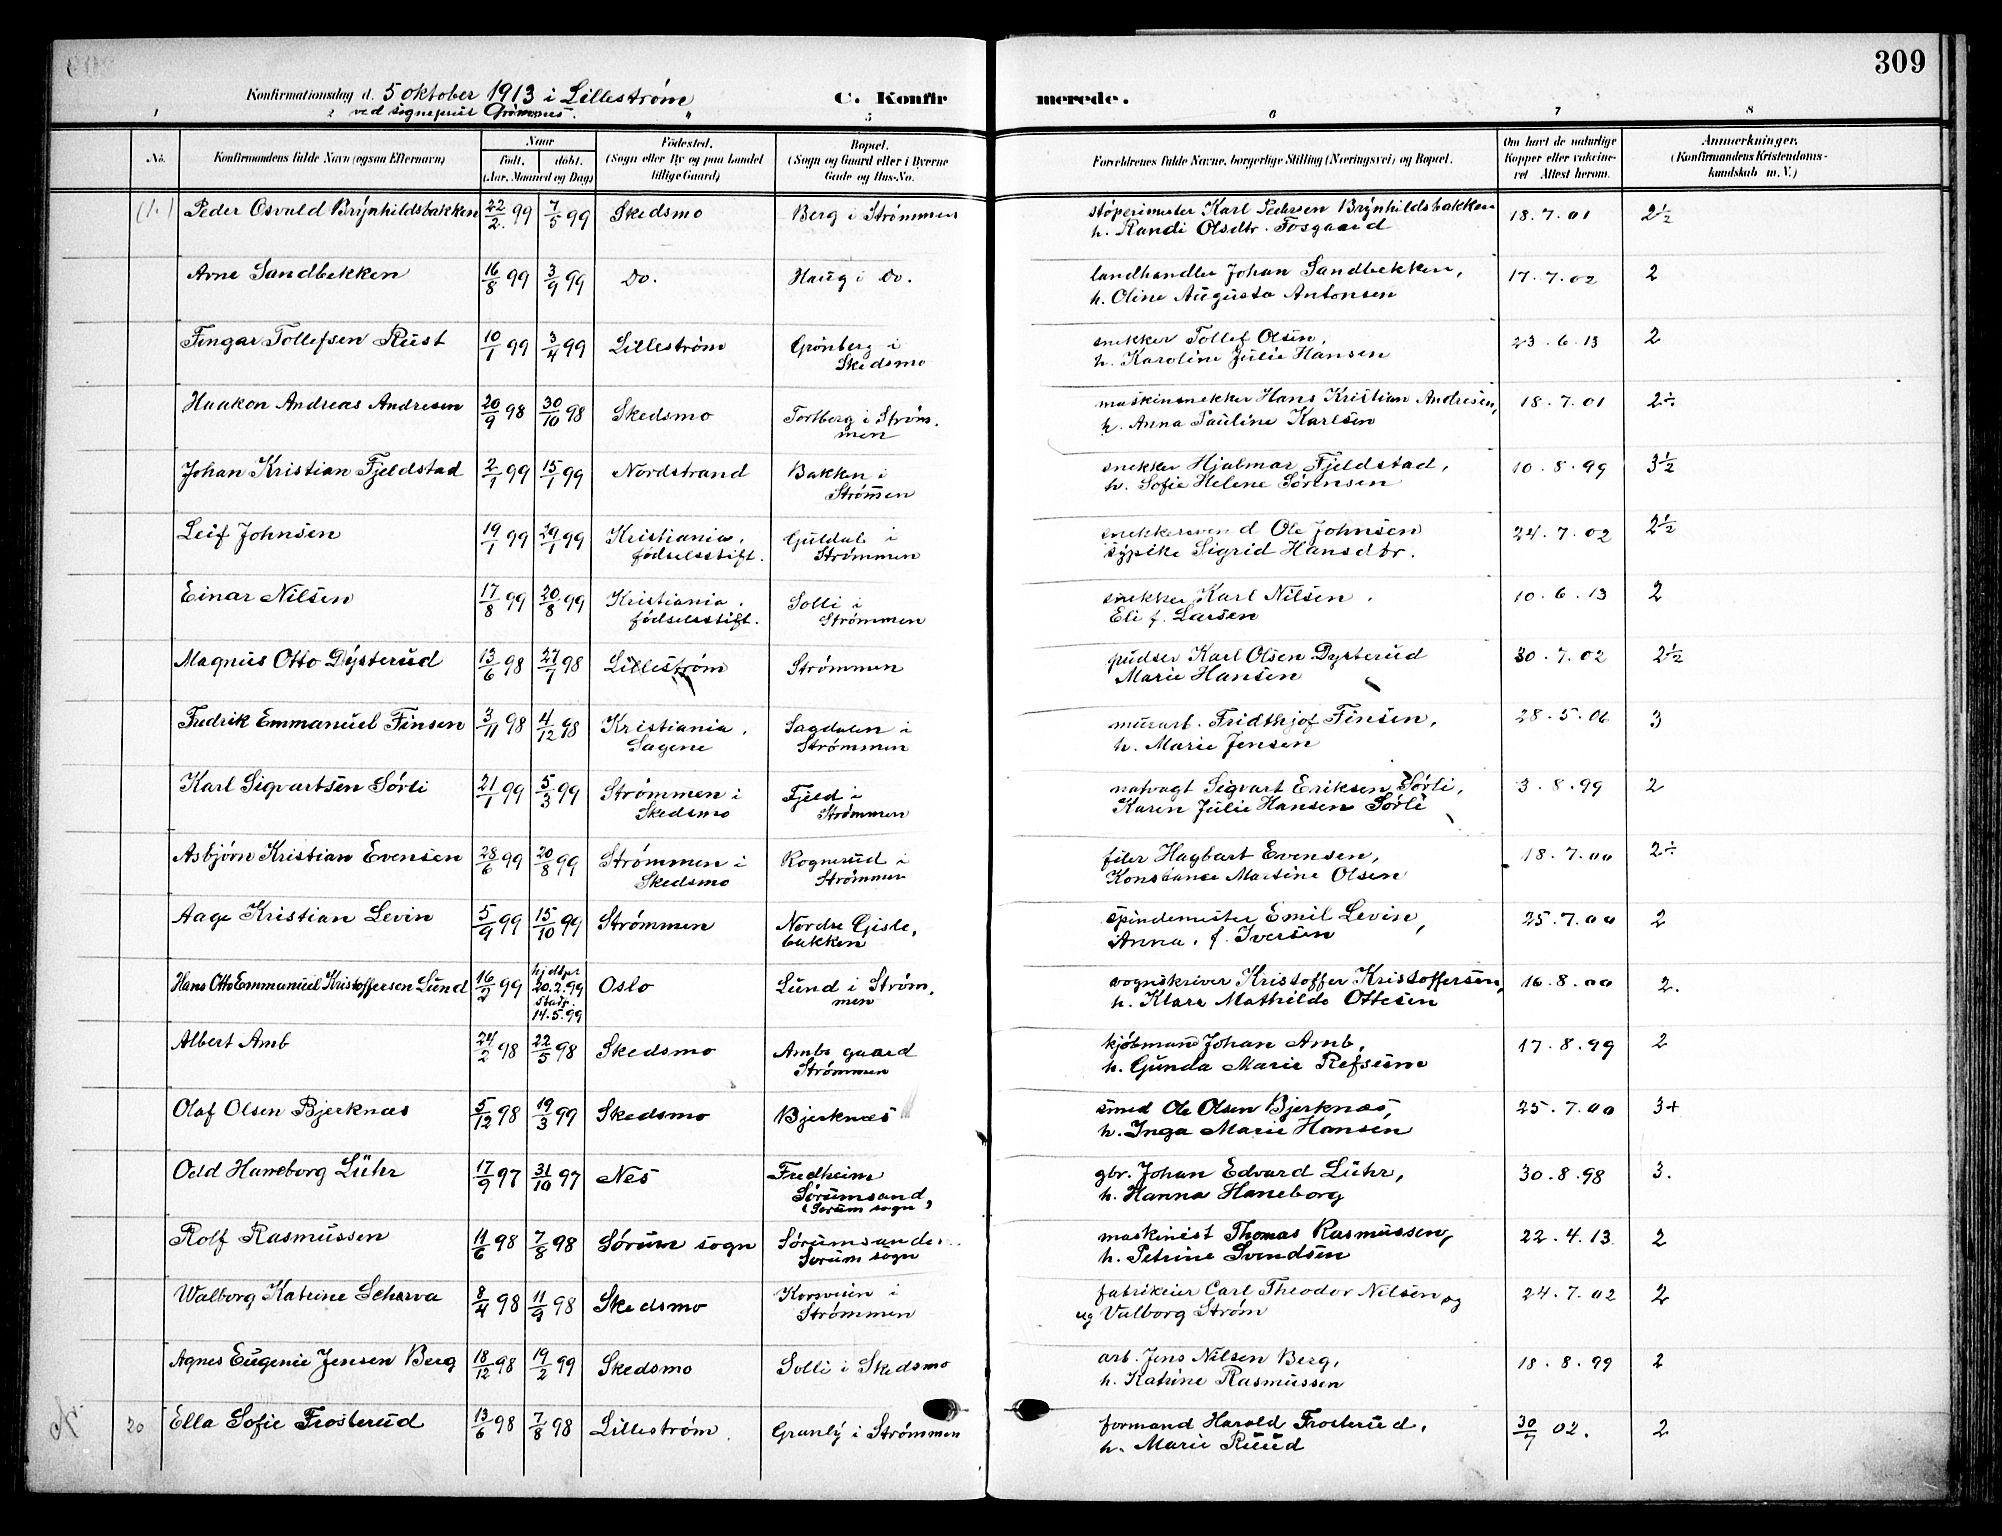 309
Konfirmationsdag d. 5 oktober 1913 i Lillestrøm C. Konfirmerede.
ved sogneprest Grømnes.
1 2 4 5 6 7 8
No. Konfirmandens fulde Navn (ogsaa Efternavn) Naar født. døbt. (Aar, Maaned og Dag) Fødested. (Sogn eller By og paa Landet tillige Gaard) Bopæl. (Sogn og Gaard eller i Byerne Gade og Hus-No. Forældrenes fulde Navne, borgerlige Stilling (Næringsvei) og Bopæl. Om havt de naturlige Kopper eller vakcineret Attest herom. Anmerkninger. (Konfirmandens Kristendomskundskab m. V.)
(1.) Peder Osvald Brynhildsbakken 22/2 99 7/5 99 Skedsmo Berg i Strømmen støperimester Karl Pedersen Brynhildsbakken 18.7.01 2½
h. Randi Olsdtr. Fosgaard
Arne Sandbekken 16/8 99 3/9 99 Do. Haug i Do. landhandler Johan Sandbekken, 17.7.02 2
h. Oline Augusta Antonsen
Fingar Tollefsen Rust 10/1 99 3/4 99 Lillestrøm Grønberg i snekker Tollef Olsen, 23.6.13 2
Skedsmo h. Karoline Julie Hansen
Haakon Andreas Andresen 20/9 98 30/10 98 Skedsmo Torlberg i Strøm- maskinsnekker Hans Kristian Andresen, 18.7.01 2÷
men h. Anna Pauline Karlsen
Johan Kristian Fjeldstad 2/1 99 15/1 99 Nordstrand Bakken i snekker Hjalmar Fjeldstad, 10.8.99 3½
Strømmen h. Sofie Helene Sørensen
Leif Johnsen 19/1 99 29/1 99 Kristiania, Guldal i snekkersven d Ole Johnsen 24.7.02 2½
fødselsstift. Strømmen sypike Sigrid Hansdtr.
Einar Nilsen 17/8 99 20/8 99 Kristiania, Solli i snekker Karl Nilsen, 10.6.13 2
fødselsstift. Strømmen Eli f. Larsen
Magnus Otto Dysterud 13/6 98 27/7 98 Lillestrøm Strømmen pudser Karl Olsen Dysterud 30.7.02 2½
Marie Hansen
Fredrik Emmanuel Finsen 3/11 98 4/12 98 Kristiania, Sagdalen i murarb. Fridthjof Finsen, 28.5.06 3
Sagene Strømmen h. Marie Jensen
Karl Sigvartsen Sørli 21/1 99 5/3 99 Strømmen i Fjeld i natvagt Sigvart Eriksen Sørli, 3.8.99 2
Skedsmo Strømmen Karen Julie Hansen Sørli
Asbjørn Kristian Evensen 28/6 99 20/8 99 Strømmen i Rognerud i filer Hagbart Evensen, 18.7.00 2÷
Skedsmo Strømmen Konstance Martine Olsen
Aage Kristian Levin 5/9 99 15/10 99 Strømmen Nordre Gisle, spindemester Emil Levin, 25.7.00 2
bakken Anna, f. Iversen
Hans Otto Emmanuel Kristoffersen Lund 16/2 99 hjdøpt 20.2.99 stadf. 14.5.99 Oslo Lund i Strøm, sognskriver Kristoffer Kristoffersen, 16.8.00 2.
men h. Klara Mathilde Ottesen
Albert Amb 24/2 98 22/5 98 Skedsmo Ambs gaard kjøbmand Johan Amb, 17.8.99 2
Strømmen h. Gunda Marie Refsum
Olaf Olsen Bjerknæs 5/12 98 19/3 99 Skedsmo Bjerknæs smed Ole Olsen Bjerknæs, 25.7.00 3+
h. Inga Marie Hansen
Odd Haneborg Lühr 17/9 97 31/10 97 Nes Fredheim gbr. Johan Edvard Lühr, 30.8.98 3.
Sørumsand, h. Hanna Haneborg
(Sørum sogn)
Rolf Rasmussen 11/6 98 7/8 98 Sørum sogn Sørumsanden maskinist Thomas Rasmussen, 22.4.13 2
Sørum sogn h. Petrine Svendsen
Walborg Katrine Scharva 8/4 98 11/9 98 Skedsmo Korsveien i fabrikeier Carl Theodor Nilsen og 24.7.02 2
Strømmen og Valborg Strøm
Agnes Eugenie Jensen Berg 18/12 98 19/2 99 Skedsmo Solli i Skedsmo arb. Jens Nilsen Berg, 18.8.99 2
h. Katrine Rasmussen
20 Ella Sofie Frosterud 13/6 98 7/8 98 Lillestrøm. Granly i Strømmen formand Harald Frosterud, 30/7 02. 2
h. Marie Ruud